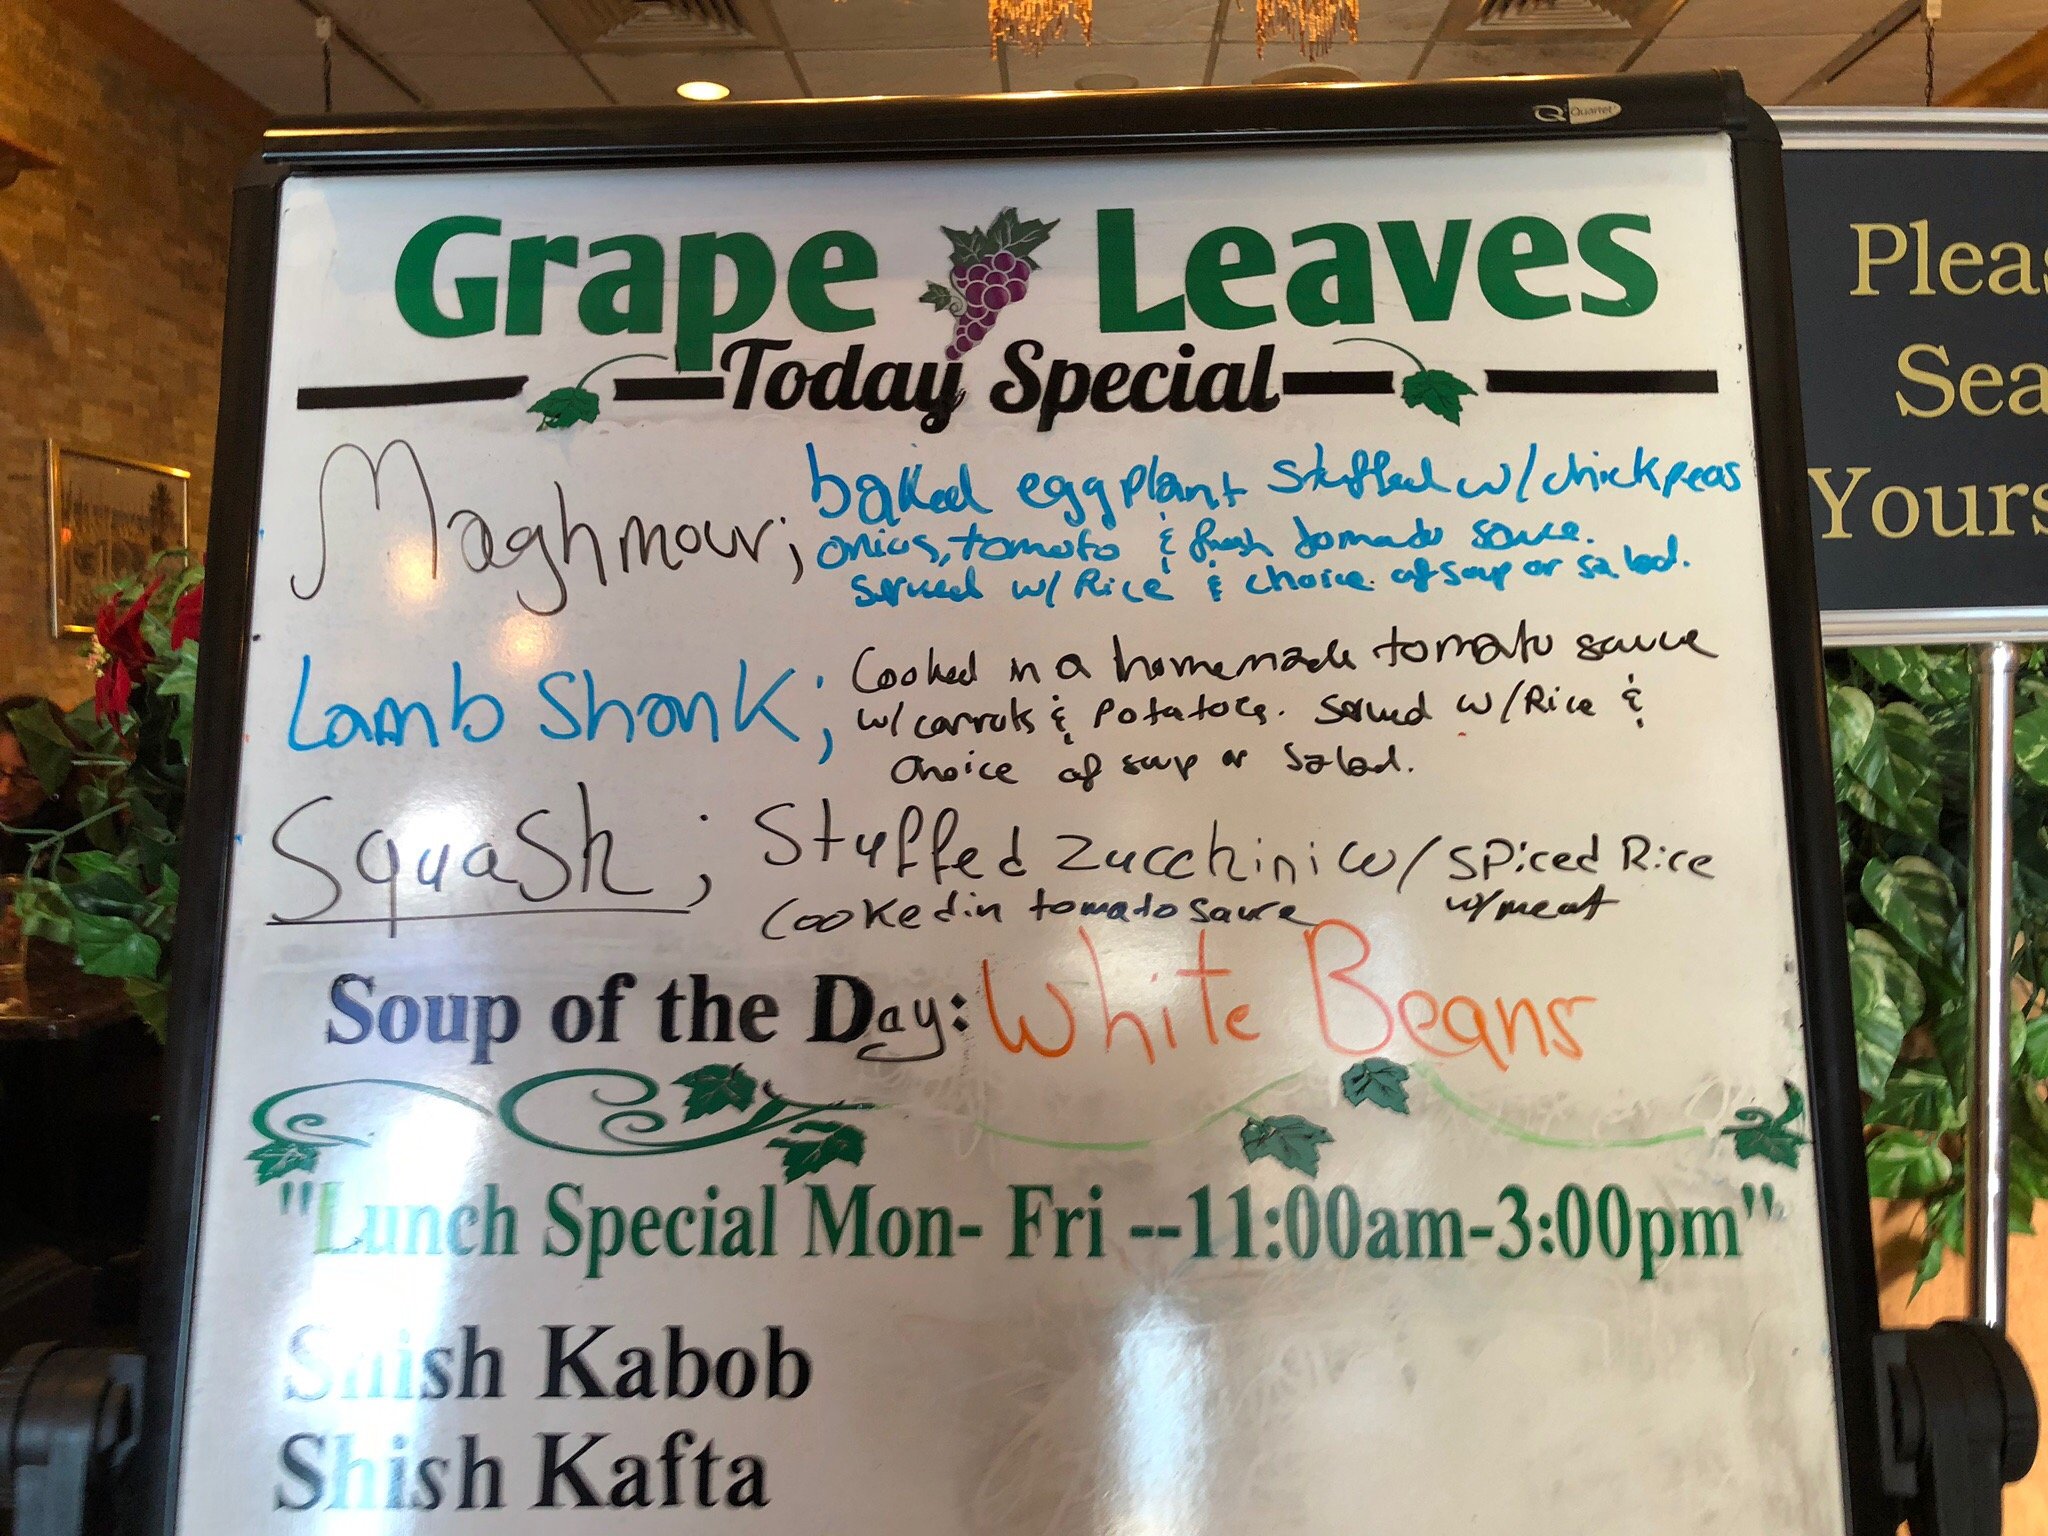 Quartet
Grape Leaves
Today Special
Maghmour; baked eggplant stuffed w/chickpeas
onios, tomato & fresh tomato sauce.
served w/ Rice & choice of soup or salad.
Lamb Shank; Cooked in a homemade tomato sauce
w/carrots & potatoes. served w/Rice &
choice of soup or salad.
Squash; Stuffed zucchini w/ spiced Rice
w/meat
Cooked in tomato sauce
Soup of the Day: White Beans
"Lunch Special Mon- Fri --11:00am-3:00pm"
Shish Kabob
Shish Kafta
Pleas
Sea
Yours